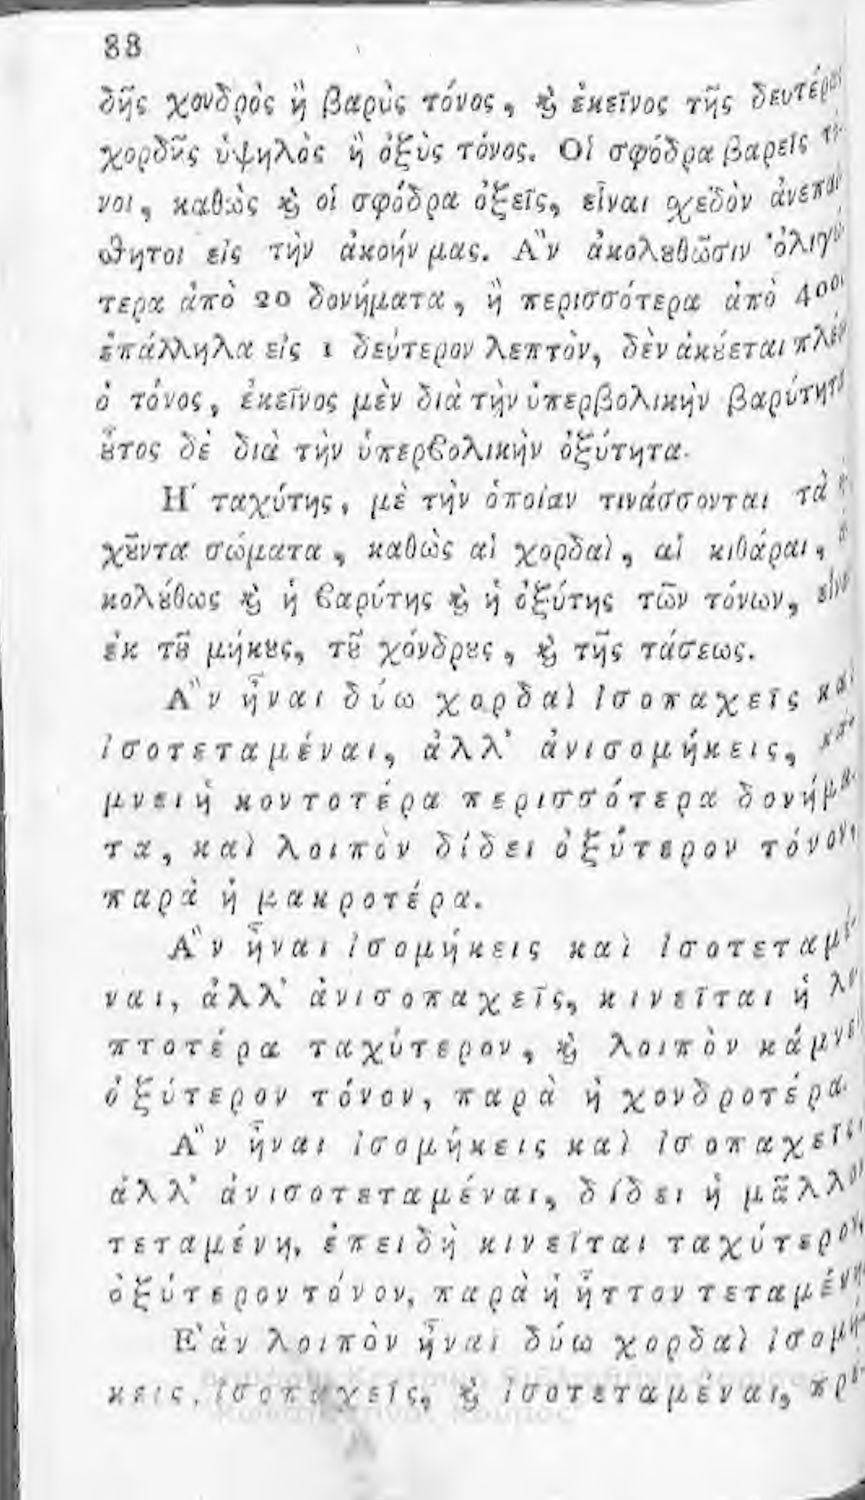 88
δῆς χονδρὸς ἢ βαρὺς τόνος, ϗ ἐκεῖνος τῆς δευτέρας
χορδῆς ὑψηλὸς ἢ ὀξὺς τόνος. Οἱ σφόδρα βαρεῖς τό-
νοι, καθὼς ϗ οἱ σφόδρα ὀξεῖς, εἶναι σχεδὸν ἀνεπαί-
σθητοι εἰς τὴν ἀκοήν μας. Α῎ν ἀκολȣθῶσιν ὀλιγώ-
τερα ἀπὸ 20 δονήματα, ἢ περισσότερα ἀπὸ
ἐπάλληλα εἰς 1 δεύτερον λεπτὸν, δὲν ἀκȣ́εται πλέον
ὁ τόνος, ἐκεῖνος μὲν διὰ τὴν ὑπερβολικὴν βαρύτητα
ȣ̓͂τος δὲ διὰ τὴν ὑπερϐολικὴν ὀξύτητα.
Η῾ ταχύτης, μὲ τὴν ὁποίαν τινάσσονται τὰ
χȣ͂ντα σώματα, καθὼς αἱ χορδαὶ, αἱ κιθάραι,
κολȣ́θως ϗ ἡ ϐαρύτης ϗ ἡ ὀξύτης τῶν τόνων, εἶναι
ἐκ τȣ͂ μήκȣς, τȣ͂ χόνδρȣς, ϗ τῆς τάσεως.
Α῎ν ἦναι δύω χορδαὶ ἰσοπαχεῖς καὶ
ἰσοτεταμέναι, ἀλλ' ἀνισομήκεις, κά-
μνει ἡ κοντοτέρα περισσότερα δονήμα-
τα, καὶ λοιπὸν δίδει ὀξύτερον τόνον,
παρὰ ἡ μακροτέρα.
Α῎ν ἦναι ἰσομήκεις καὶ ἰσοτεταμέ-
ναι, ἀλλ' ἀνισοπαχεῖς, κινεῖται ἡ λε-
πτοτέρα ταχύτερον, ϗ λοιπὸν κάμνει
ὀξύτερον τόνον, παρὰ ἡ χονδροτέρα.
Α῎ν ἦναι ἰσομήκεις καὶ ἰσοπαχεῖς,
ἀλλ' ἀνισοτεταμέναι, δίδει ἡ μᾶλλον
τεταμένη, ἐπειδὴ κινεῖται ταχύτερον,
ὀξύτερον τόνον, παρὰ ἡ ἧττον τεταμένη.
Ε᾿ὰν λοιπὸν ἦναι δύω χορδαὶ ἰσομή-
κεις, ἰσοπαχεῖς, ϗ ἰσοτεταμέναι, πρέ-